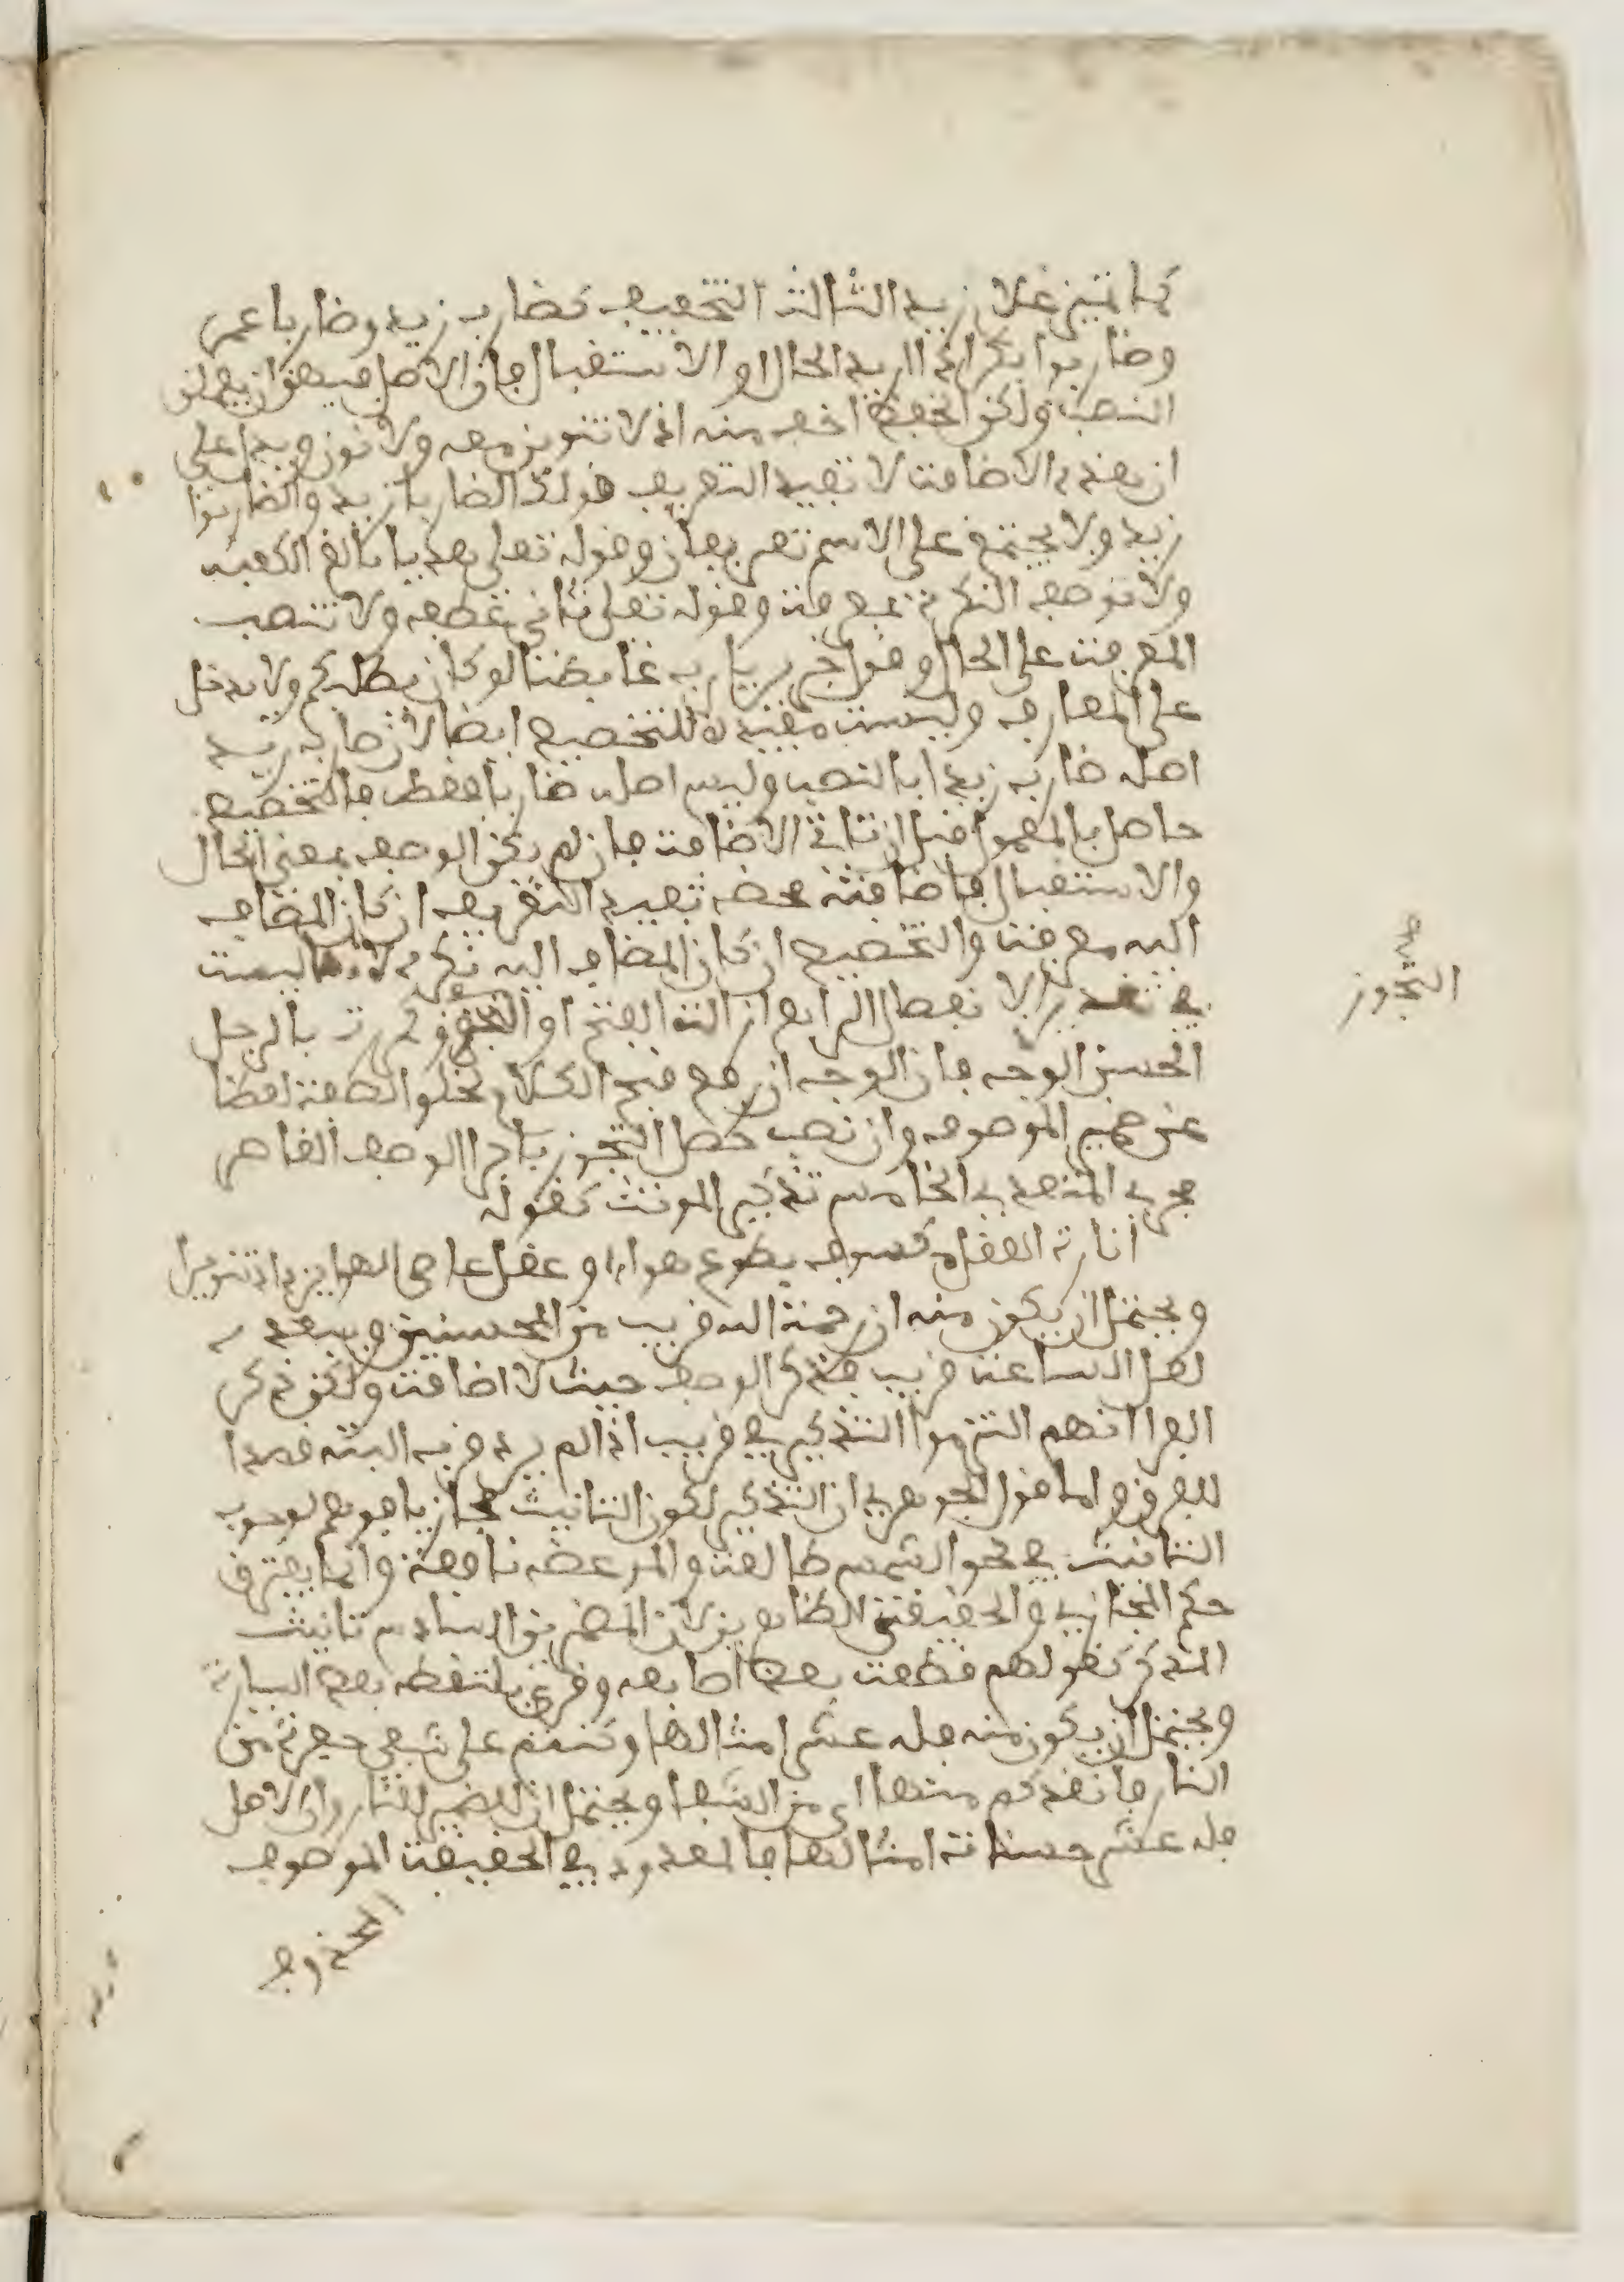 كما تميز غلام زيد الثالث التخفيف كضارب زيد وضاربا عمر
وضاربوا بكر اذا اريد الحال او الاستقبال فان الاصل فيهن ان يعملن
النصب ولكن الخفض اخف منه اذ لا تنوين معه ولا نون ويدل على
ان هذه الاضافة لا تفيد التعريف قولك الضاربا زيد والضاربوا
زيد ولا يجتمع على الاسم تعريفان وقوله تعلى هديا بالغ الكعبه
ولا توصف النكرة بمعرفة وقوله تعلى ثاني عطفه ولا تنتصب
المعرفة على الحال وقول جرير يارب غابطنا لو كان يطلبكم ولا تدخل
على المعارف وليست مفيدة للتخصيص ايضا لان ضارب زيد
اصله ضارب زيدا بالنصب وليس اصله ضاربا فقط فالتخصيص
حاصل بالمعمول قبل ان تاتي الاضافة فان لم يكن الوصف بمعنى الحال
والاستقبال فاضافته محضه تفيد التعريف ان كان المضاف
اليه معرفة والتخصيص ان كان المضاف اليه نكرة لانها ليست
في تقدير الانفصال الرابع ازالة القبح او التجوز كمررت بالرجل
الحسن الوجه فان الوجه ان رفع قبح الكلام لخلو الصفة لفظا
عن ضمير الموصوف وان نصب حصل التجوز باجرا الوصف القاصر
مجرى المتعدي الخامس تذكير المونث كقوله
انارة العقل مكسوف بطوع هوا وعقل عاصي الهوا يزداد تنويرا
ويحتمل ان يكون منه ان رحمة الله قريب من المحسنين ويبعده
لعل الساعة قريب فذكر الوصف حيث لا اضافة ولكن ذكر
الفرا انهم التزموا التذكير في قريب اذا لم يرد قرب النسب قصدا
للفرق واما قول الجوهري ان التذكير لكون التانيث مجازيا فوهم لوجوب
التانيث في نحو الشمس طالعة والموعظه نافعة وانما يفترق
حكم المجازي والحقيقي الظاهرين لا المضمرين السادس تانيث
المذكر كقولهم قطعت بعض اصابعه وقرئ تلتقطه بعض السيارة
ويحتمل ان يكون منه فله عشر امثالها وكنتم على شفى حفرة من
النار فانقذكم منها اي من الشفا ويحتمل ان الضمير للنار وان الاصل
فله عشر حسنات امثالها فالمعدود في الحقيقة الموصوف
المحذوف
صح
التجوز